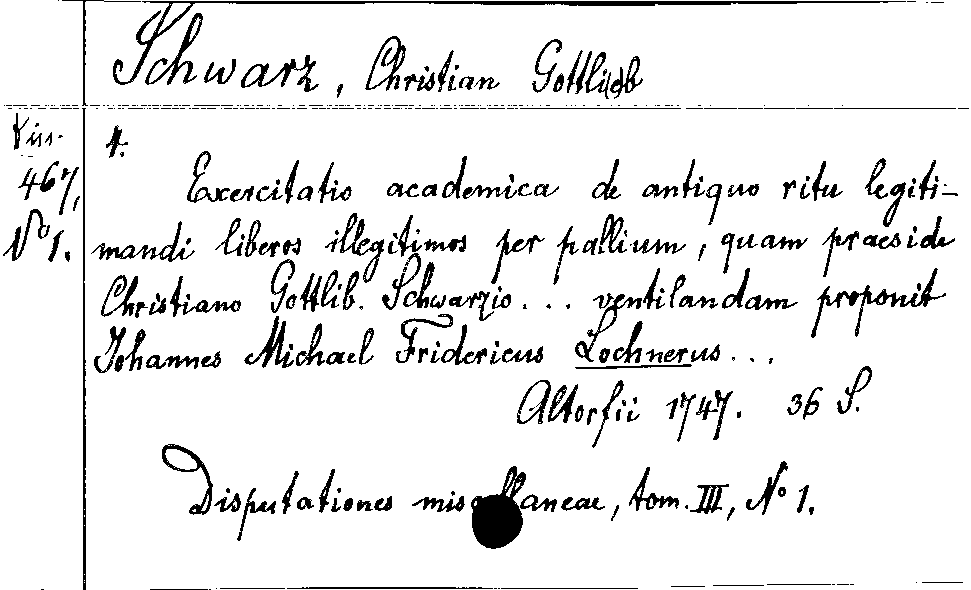 Schwarz, Christian Gottlieb
Kiss.
467,
No 1.
4.
Exercitatio academica de antiquo ritu legiti-
mandi liberos illegitimos per pallium, quam praeside
Christiano Gottlib. Schwarzio ... ventilandam proponit
Johannes Michael Fridericus Lochnerus ...
Altorfii 1747. 36 S.
Disputationes miscellaneae, tom. III, No 1.